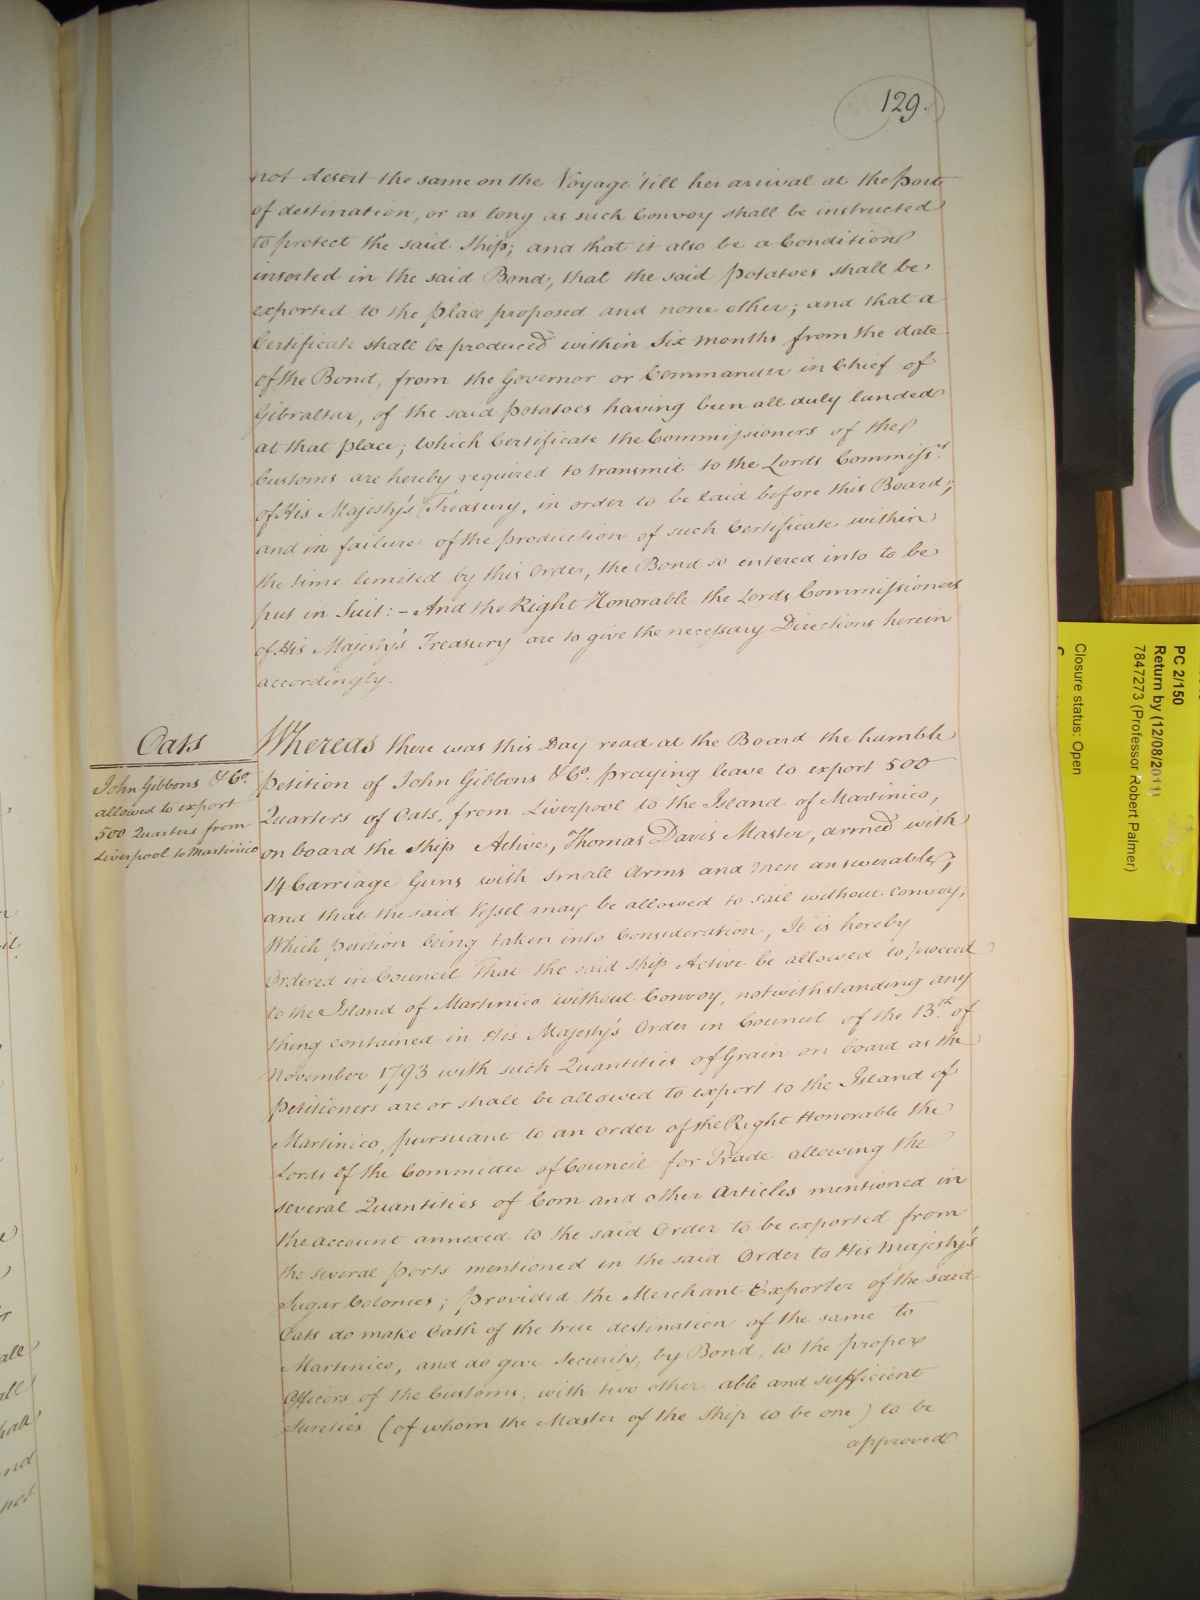 129.
not desert the same on the Voyage 'till her arrival at the Port
of destination, or as long as such Convoy shall be instructed
to protect the said Ship; and that it also be a Condition
inserted in the said Bond, that the said Potatoes shall be
exported to the place proposed and none other; and that a
Certificate shall be produced within Six months from the date
of the Bond, from the Governor or Commander in Chief of
Gibraltar, of the said Potatoes having been all duly landed
at that place; which Certificate the Commissioners of the
Customs are hereby required to transmit to the Lords Commissrs.
of His Majesty's Treasury, in order to be laid before this Board;
and in failure of the production of such Certificate within
the time limited by this Order, the Bond so entered into to be
put in Suit: - And the Right Honorable the Lords Commissioners
of His Majesty's Treasury are to give the necessary Directions herein
accordingly.
Oats
John Gibbons & Co.
allowed to export
500 Quarters from
Liverpool to Martinico
Whereas there was this Day read at the Board the humble
Petition of John Gibbons & Co. praying leave to export 500
Quarters of Oats, from Liverpool to the Island of Martinico,
on board the Ship Active, Thomas Davis Master, armed with
14 Carriage Guns with small Arms and Men answerable,
and that the said Vessel may be allowed to sail without Convoy,
Which petition being taken into Consideration, It is hereby
Ordered in Council That the said Ship Active be allowed to proceed
to the Island of Martinico without Convoy, notwithstanding any
thing contained in His Majesty's Order in Council of the 13th. of
November 1793 with such Quantities of Grain on board as the
Petitioners are or shall be allowed to export to the Island of
Martinico, pursuant to an Order of the Right Honorable the
Lords of the Committee of Council for Trade allowing the
several Quantities of Corn and other Articles mentioned in
the account annexed to the said Order to be exported from
the several ports mentioned in the said Order to His Majesty's
Sugar Colonies; provided the Merchant Exporter of the said
Oats do make Oath of the true destination of the same to
Martinico, and do give Security, by Bond, to the proper
Officers of the Customs, with two other able and sufficient
Sureties (of whom the Master of the Ship to be one) to be
approved
PC 2/150
Return by (12/08/2011)
7847273 (Professor Robert Palmer)
Closure status: Open